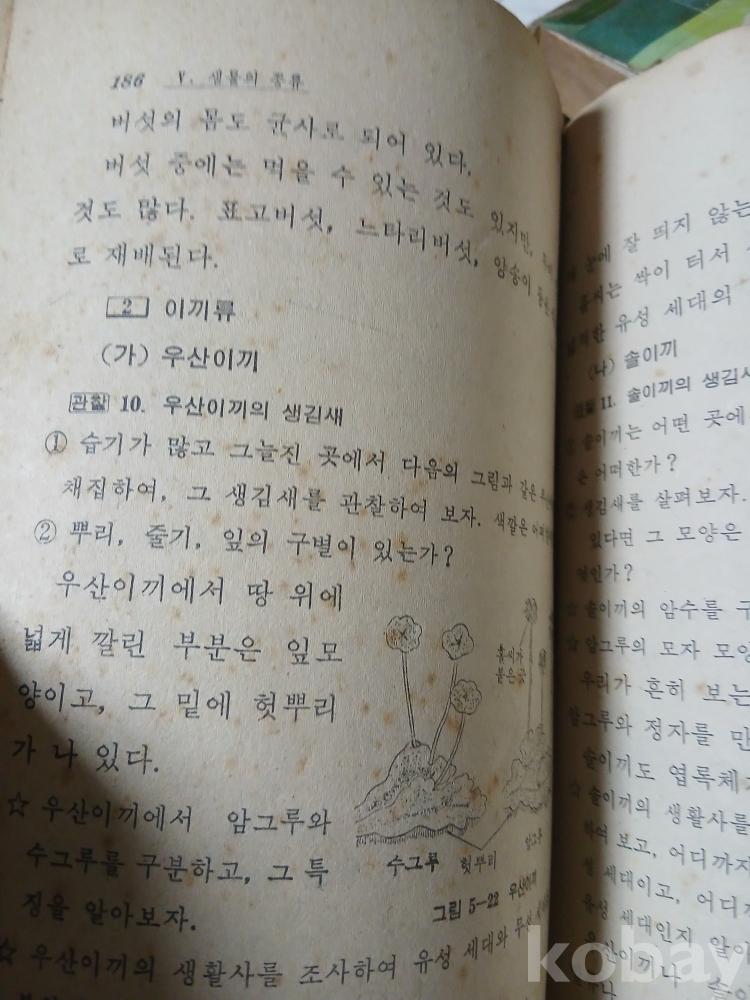 186 V. 생물의 종류
버섯의 몸도 균사로 되어 있다.
버섯 중에는 먹을 수 있는 것도 있지만,
것도 많다. 표고버섯, 느타리버섯, 양송이
로 재배된다.
2 이끼류
(가) 우산이끼
관찰 10. 우산이끼의 생김새
① 습기가 많고 그늘진 곳에서 다음의 그림과 같은
채집하여, 그 생김새를 관찰하여 보자. 색깔은
② 뿌리, 줄기, 잎의 구별이 있는가?
우산이끼에서 땅 위에
넓게 깔린 부분은 잎모
양이고, 그 밑에 헛뿌리
가 나 있다.
☆ 우산이끼에서 암그루와
수그루를 구분하고, 그 특
징을 알아보자.
☆ 우산이끼의 생활사를 조사하여 유성 세대와 무성
홀씨가
붙은 곳
수그루 헛뿌리 암그루
그림 5-22 우산이끼
눈에 잘 띄지 않는
홀씨는 싹이 터서
유성 세대의
(나) 솔이끼
관찰 11. 솔이끼의 생김새
솔이끼는 어떤 곳에
은 어떠한가?
생김새를 살펴보자.
있다면 그 모양은
엇인가?
☆ 솔이끼의 암수를 구
☆ 암그루의 모자 모양
우리가 흔히 보는
암그루와 정자를 만
솔이끼도 엽록체
☆ 솔이끼의 생활사를
하여 보고, 어디까지
성 세대이고, 어디
유성 세대인지 알아
우산이끼나 솔이
kobay